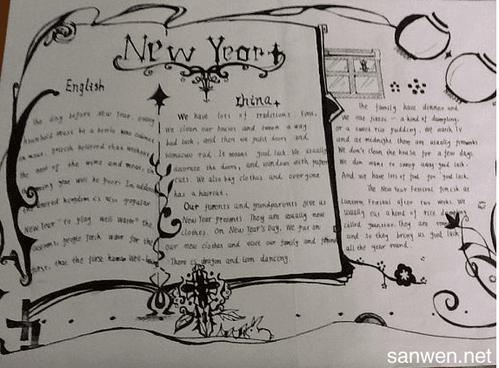 New Year
English
The day before New Year, every
household must be a bottle wine cabinet
in meat. British believed that without
the rest of the wine and meat, in
coming year will be poor. In addition
the united kingdom is also popular
New Year "to play well warm" the
customs people fetch water for the
first, that the first
China
We have lots of traditions time.
We clean our houses and sweep a way
bad luck, and then we paint doors and
windows red. It means good luck. We usually
decorate the doors and windows with paper
cuts. We also buy clothes and everyone
has a haircut.
Our parents and grandparents give us
New Year presents. They are usually new
clothes. On New Year's Day, We put on
our new clothes and visit our family and friends
There is dragon and lion dancing.
The family have dinner and
We eat jiaozi — a kind of dumpling,
or a sweet rice pudding. We watch TV
and at midnight there are usually fireworks
We don't clean the house for a few days.
We don't want to sweep away good luck.
And we have lots of food for good luck.
The New Year Festival finish at
Lantern Festival after two weeks. We
usually eat a kind of rice
called yuanxiao. They are round
and so they bring us good luck
all the year round.
sanwen.net